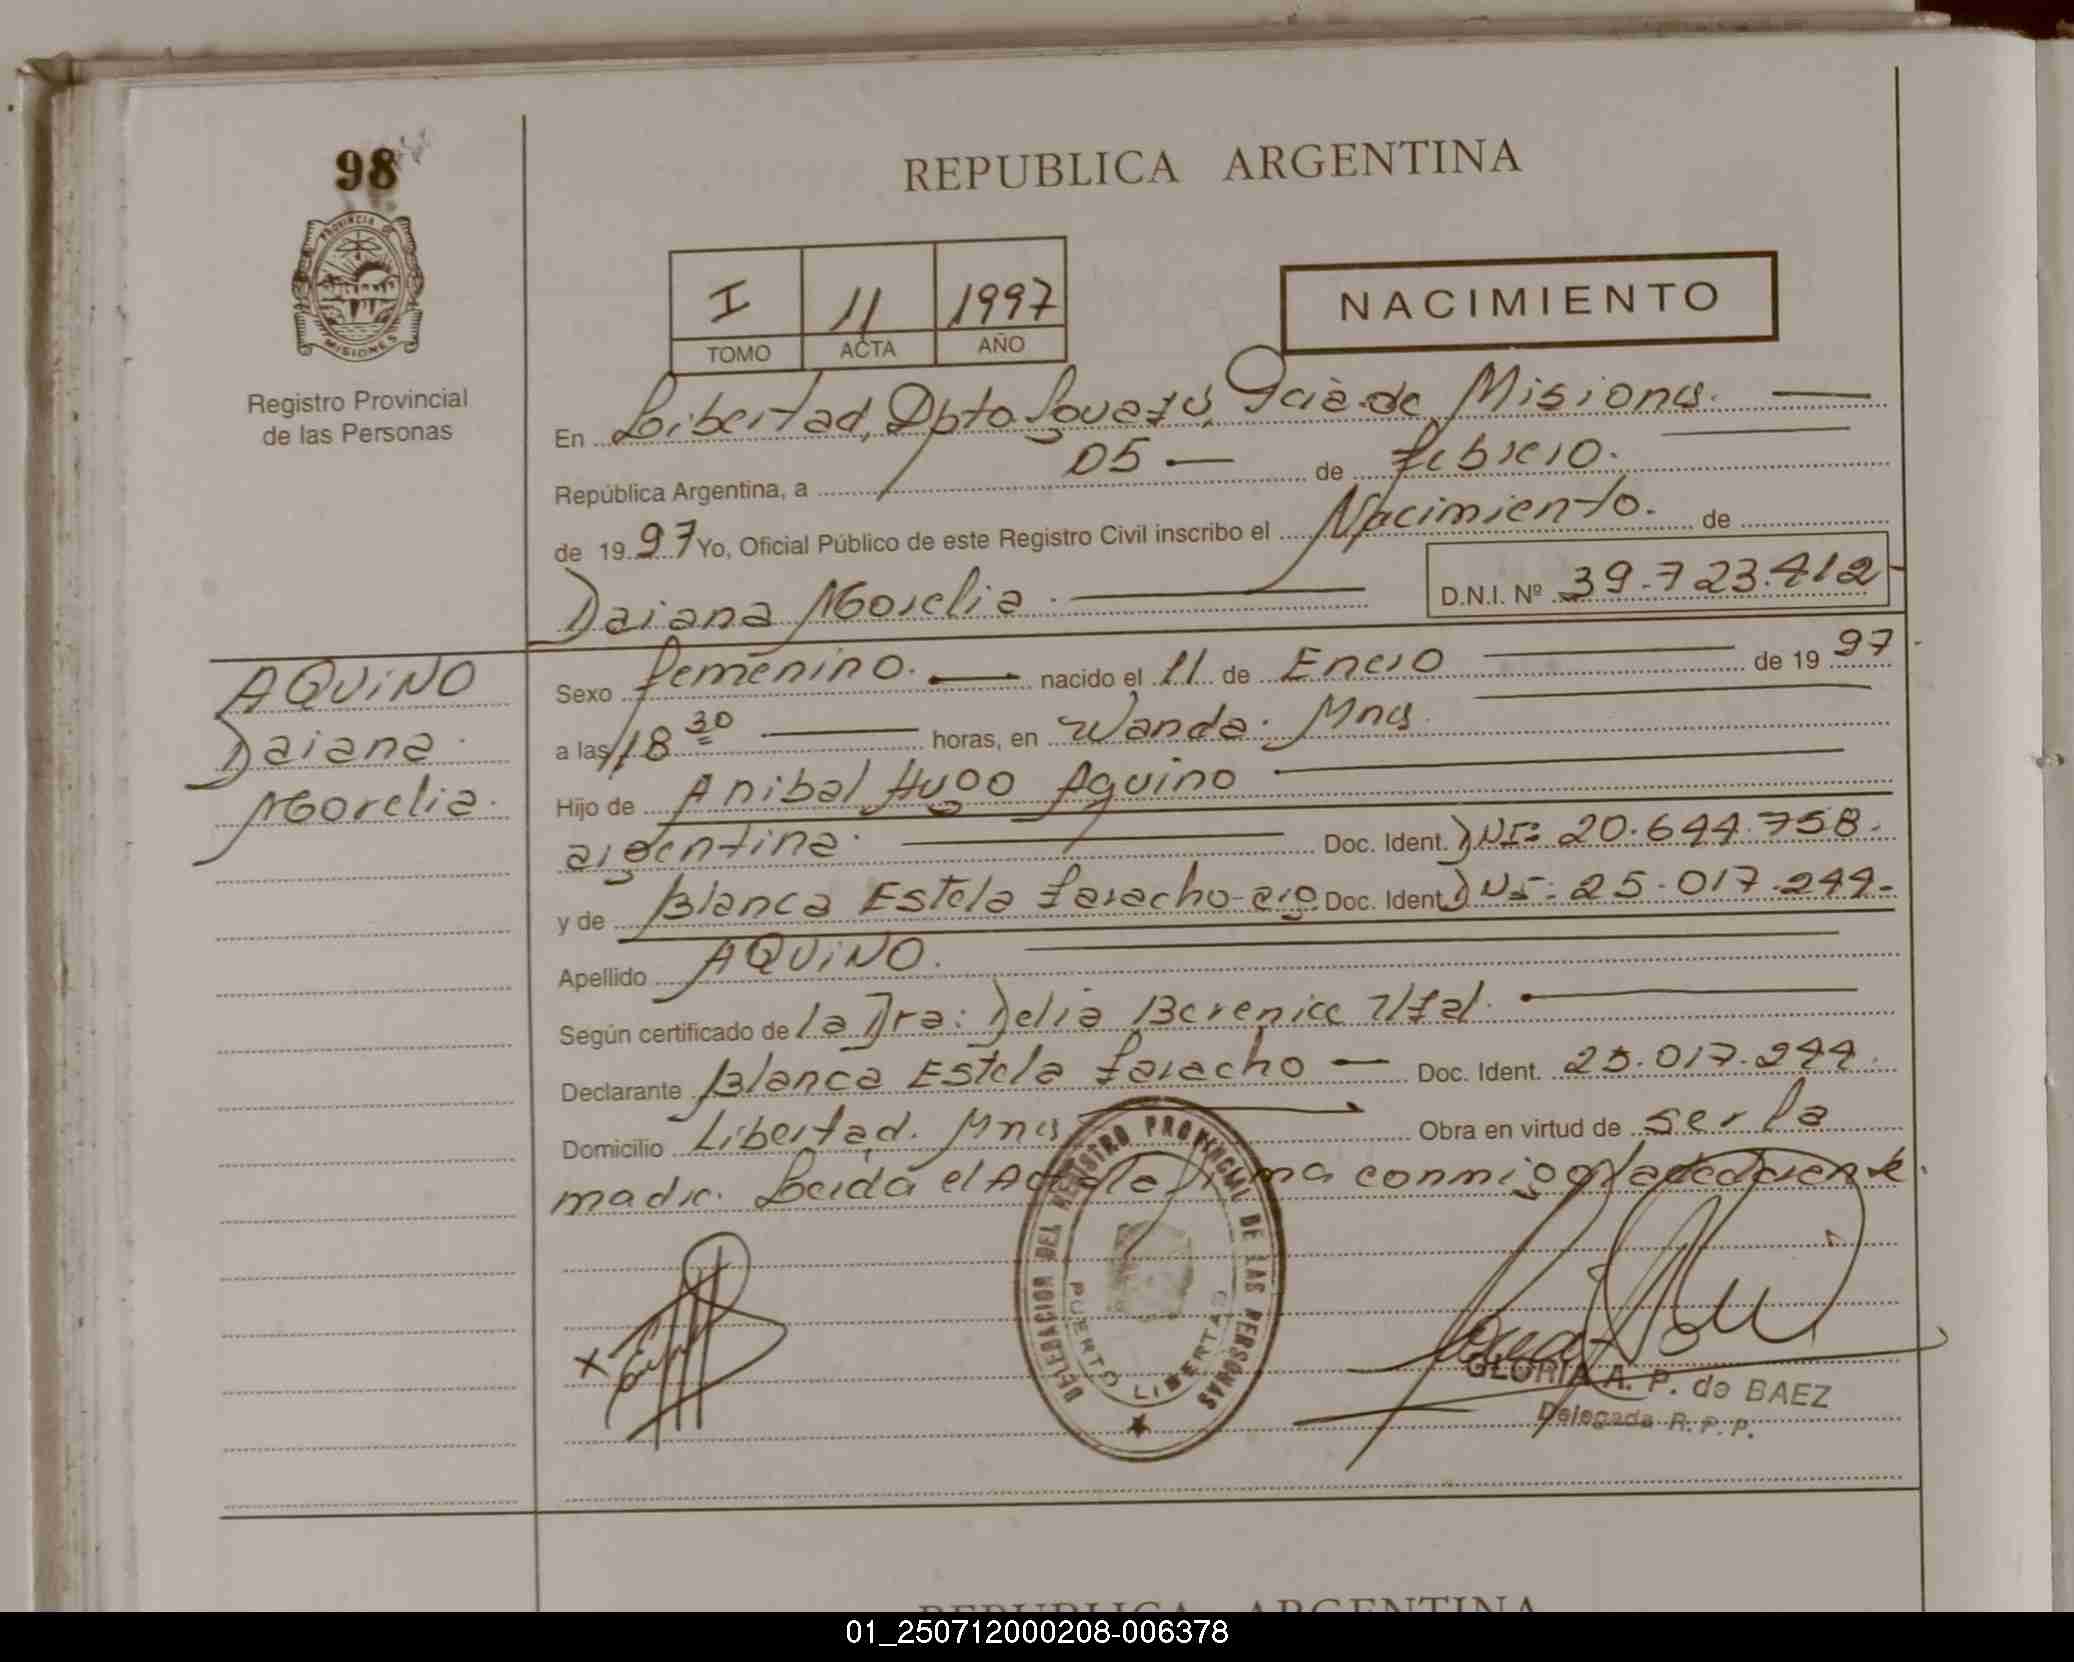 98
PROVINCIA DE MISIONES
Registro Provincial
de las Personas
REPUBLICA ARGENTINA
I 11 1997
TOMO ACTA AÑO
NACIMIENTO
En Libertad, Dpto Iguazú, Pcià de Misiones.
República Argentina, a 05 de febrero.
de 1997 Yo, Oficial Público de este Registro Civil inscribo el Nacimiento. de
Daiana Morelia. D.N.I. Nº 39.723.412
AQUiNO
Daiana
Morelia.
Sexo femenino. nacido el 11 de Enero de 1997
a las 18 30 horas, en Wanda. Mnes.
Hijo de Anibal Hugo Aquino
argentina. Doc. Ident. DNI: 20.644.758.
y de Blanca Estela Faracho-arg. Doc. Ident. DNI: 25.017.244.
Apellido AQUiNO.
Según certificado de la Dra: Delia Berenice
Declarante Blanca Estela Faracho Doc. Ident. 25.017.244.
Domicilio Libertad. Mnes Obra en virtud de ser la
madre. Leida el Acta la firma conmigo la declarante.
DELEGACION DEL REGISTRO PROVINCIAL DE LAS PERSONAS
PUERTO LIBERTAD
X
GLORIA A. P. de BAEZ
Delegada R.P.P.
REPUBLICA ARGENTINA
01_250712000208-006378